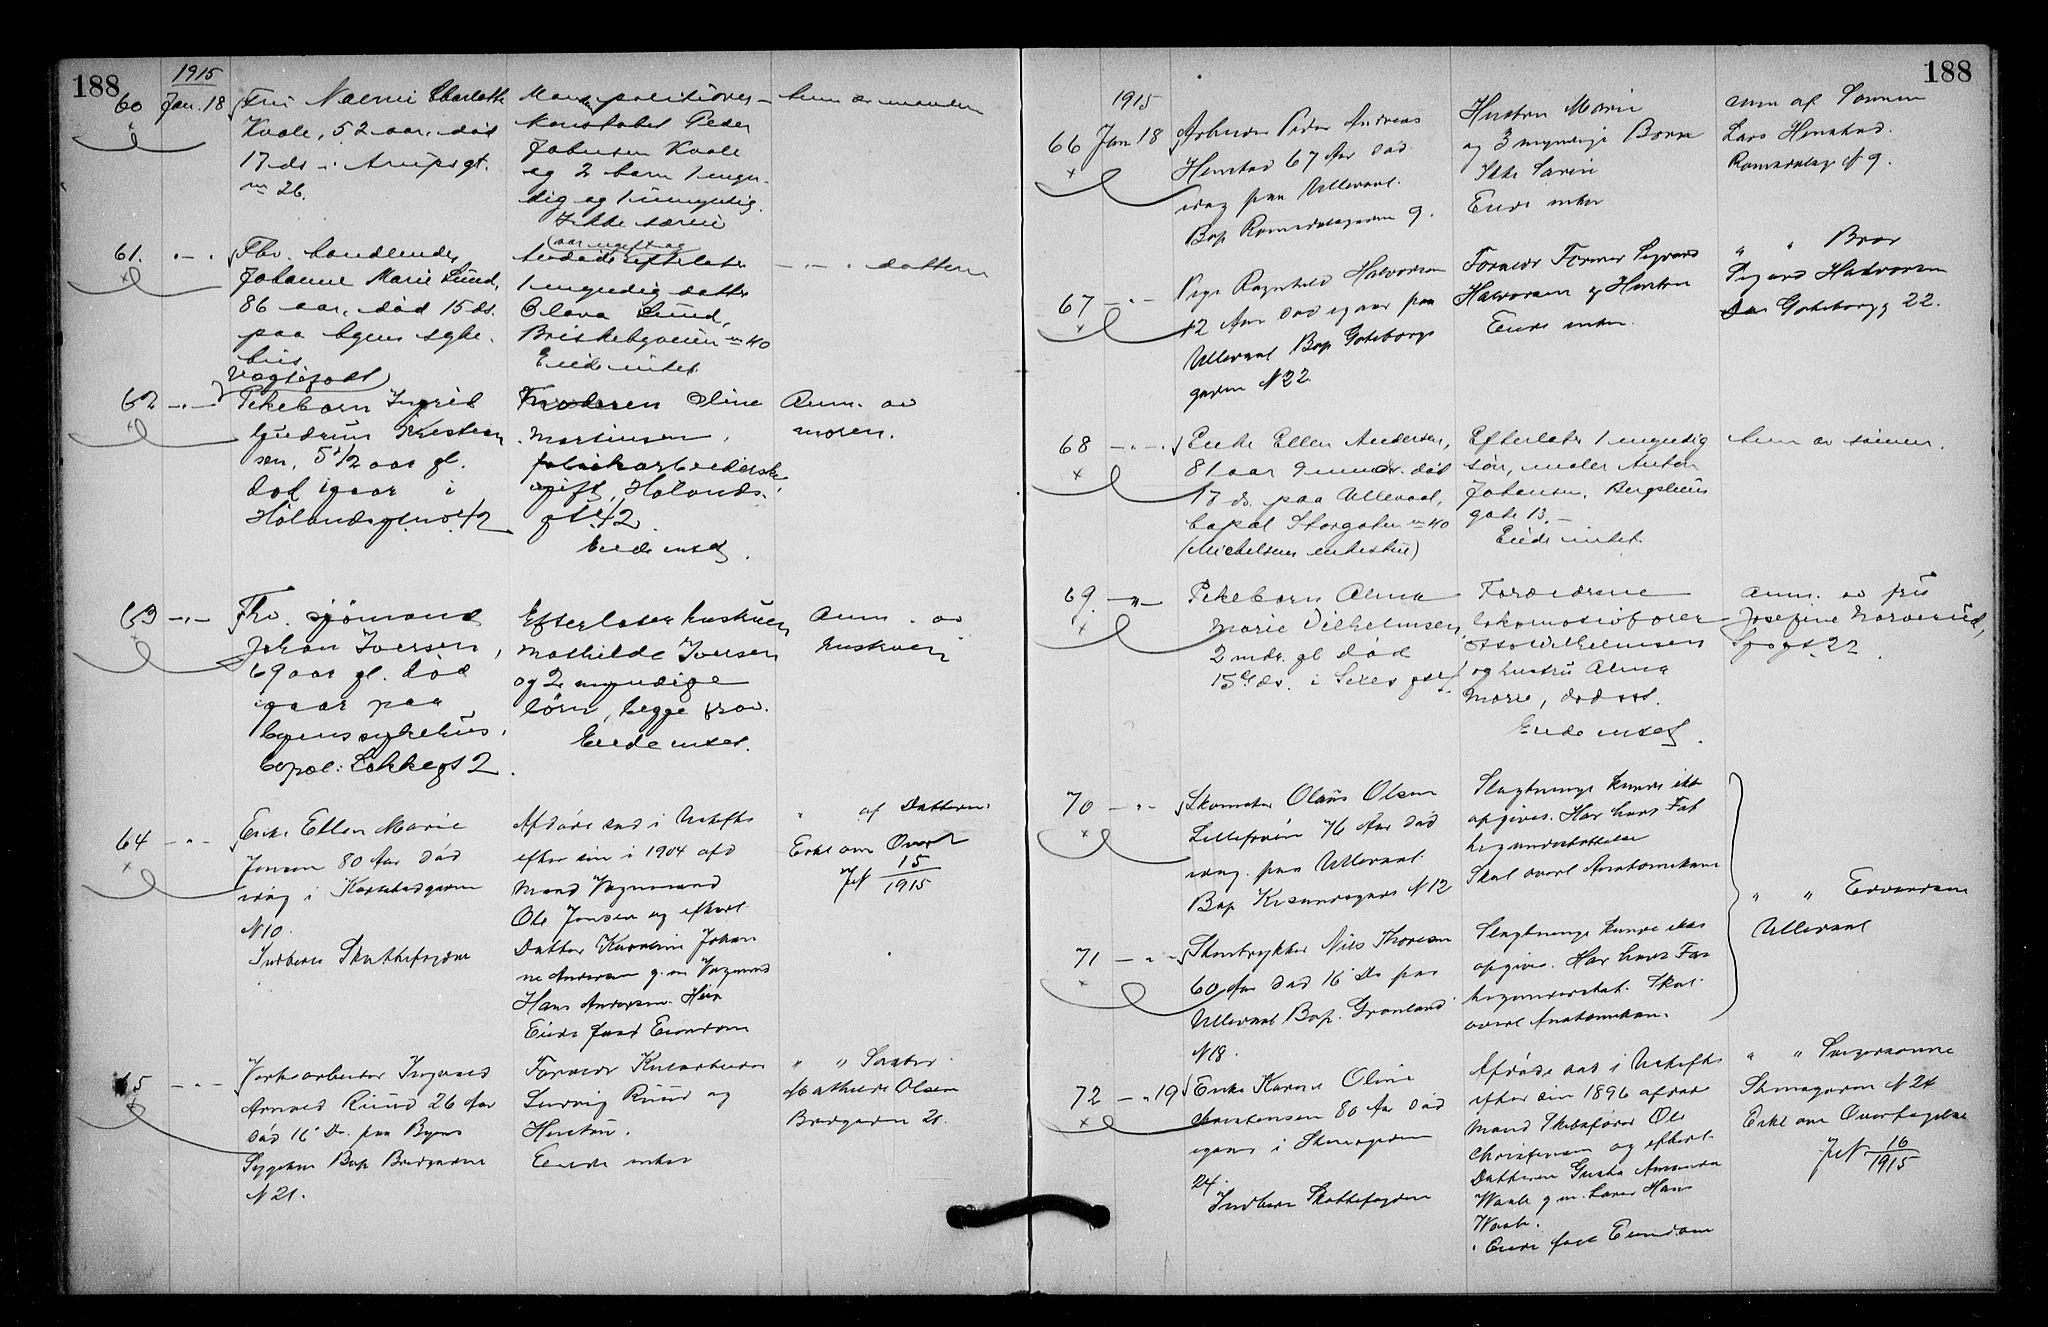 188
1915
60 Jan. 18 Fru Naemi Charlotte
Kvale, 52 aar, død
17 ds i Arupsgt.
no 26.
Mand politiover-
konstabel Peder
Johnsen Kvale
og 2 barn 1 myn-
dig og 1 umyndig.
Ikke særeie
Anm av manden
61. - " - Fhv. handlende
Johanne Marie Lund,
86 aar, død 15 ds.
paa byens syke-
hus
var ugift og
efterlater
1 myndig datter
Olava Lund,
Briskebyveien no 40
Eiede intet
- " - datteren
62 - " - Uegtefødt
Pikebarn Ingrid
Gudrun Kristian
sen, 5 1/2 aar gl.
død igaar i
Hølandsgt no 42
Moderen Oline
Martinsen,
fabrikarbeiderske
ugift, Hølands-
gt 42
Eiede intet.
Anm. av
moren.
63 - " - Fhv. sjømand
Johan Iversen,
69 aar gl. død
igaar paa
byens sykehus,
bopæl: Løkkegt 2.
Efterlater hustruen
Mathilde Iversen
og 2 myndige
børn, begge frav.
Eiede intet.
Anm. av
hustruen
64 - " - Enke Ellen Marie
Jensen 80 Aar død
idag i Karlstadgaden
N 10.
Indberet Skattefogden
Afdøde sad i Uskifte
efter sin i 1904 afd
Mand Vognmand
Ole Jensen og efterl
Datter Karoline Johan
ne Andersen g. m Vognmand
Hans Andersen. Her
Eiede fast Eiendom
" af Datteren
Erkl om Overt
JN 15/1915
65 - " - Verksarbeider Ingvald
Arnold Ruud 26 Aar
død 16 Ds. paa Byens
Sygehus Bop Bredgaden
N 21.
Forældre
Ludvig Ruud og
Hustru.
Eiede intet
" " Søster
Mathilde Olsen
Bredgaden 21.
188
1915
66 Jan 18 Arbeider Peder Andreas
Henstad 67 Aar død
idag paa Ullevaal.
Bop Romsdalsgaden 9.
Hustru Marie
og 3 myndige Børn
Ikke Særeie
Eiede intet
Anm af Sønnen
Lars Henstad.
Romsdalsg N 9.
67 - " - Pige Ragnhild Halvorsen
12 Aar død igaar paa
Ullevaal Bop Goteborg
gaden N 22.
Forældre Former Sigvard
Halvorsen og Hustru
Eiede intet.
" " Bror
Sigurd Halvorsen
Goteborgg 22.
68 - " - Enke Ellen Andersen,
81 aar 9 mndr. død
17 ds. paa Ullevaal,
bopæl Storgaten no 40
(Michelsens enkestue)
Efterlater 1 myndig
søn, maler Anton
Johansen, Bergsliens
gate 13. -
Eiede intet.
Anm av sønnen.
69. - " - Pikebarn Alma
Marie Vilhelmsen,
2 mdr. gl død
15 ds. i
Forældrene
lokomotivfører
Otto Vilhelmsen
og hustru Alma
Marie,
Eiede intet.
Anm. av fru
Josefine Narverud,
22.
70 - " - Skomaker Olaus Olsen
Lillefosen 76 Aar død
idag paa Ullevaal.
Bop Kr.sundsgade N 12
Slægtninge kunde ikke
opgives. Har havt Fat
tigunderstøttelse
Skal overl Anatomikam
71 - " - Stentrykker Nils Thoresen
60 Aar død 16 Ds paa
Ullevaal Bop. Grønland
N 18.
Slægtninge kunde ikke
opgives. Har havt Fat
tigunderstøt. Skal
overl Anatomikam.
" " Edvardsen
Ullevaal
72 - " 19 Enke Karen Oline
Christensen 80 Aar død
igaar i Stensgaden
24.
Indberet Skattefogden
Afdøde sad i Uskifte
efter sin 1896 afdøde
Mand Skibsfører Ole
Christensen og efterl
Datteren Gusta Amanda
Waale g. m. Lærer Hans
Waale.
Eiede fast Eiendom
" " Svigersønnen
Stensgaden N 24
Erkl om Overtagelse
JN 16/1915